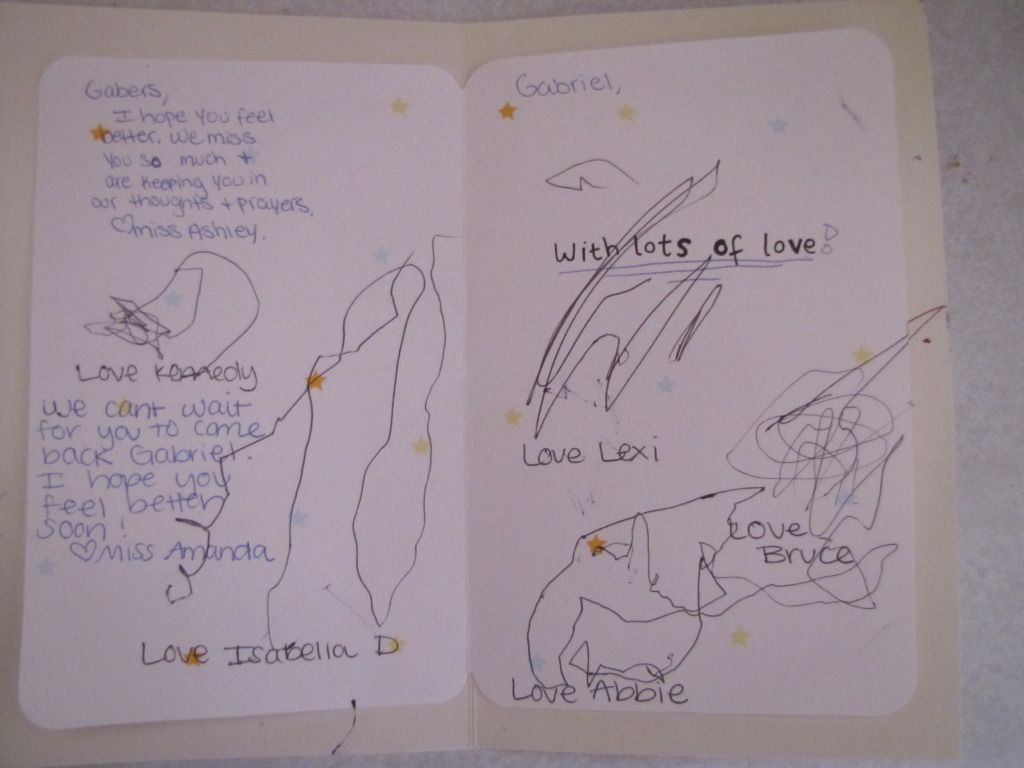 Gabers,
I hope you feel
better. We miss
you so much +
are keeping you in
our thoughts + prayers,
♡miss Ashley.
Love Kennedy
We cant wait
for you to come
back Gabriel.
I hope you
feel better
soon!
♡Miss Amanda
Love Isabella D
Gabriel,
With lots of love!
Love Lexi
Love
Bruce
Love Abbie